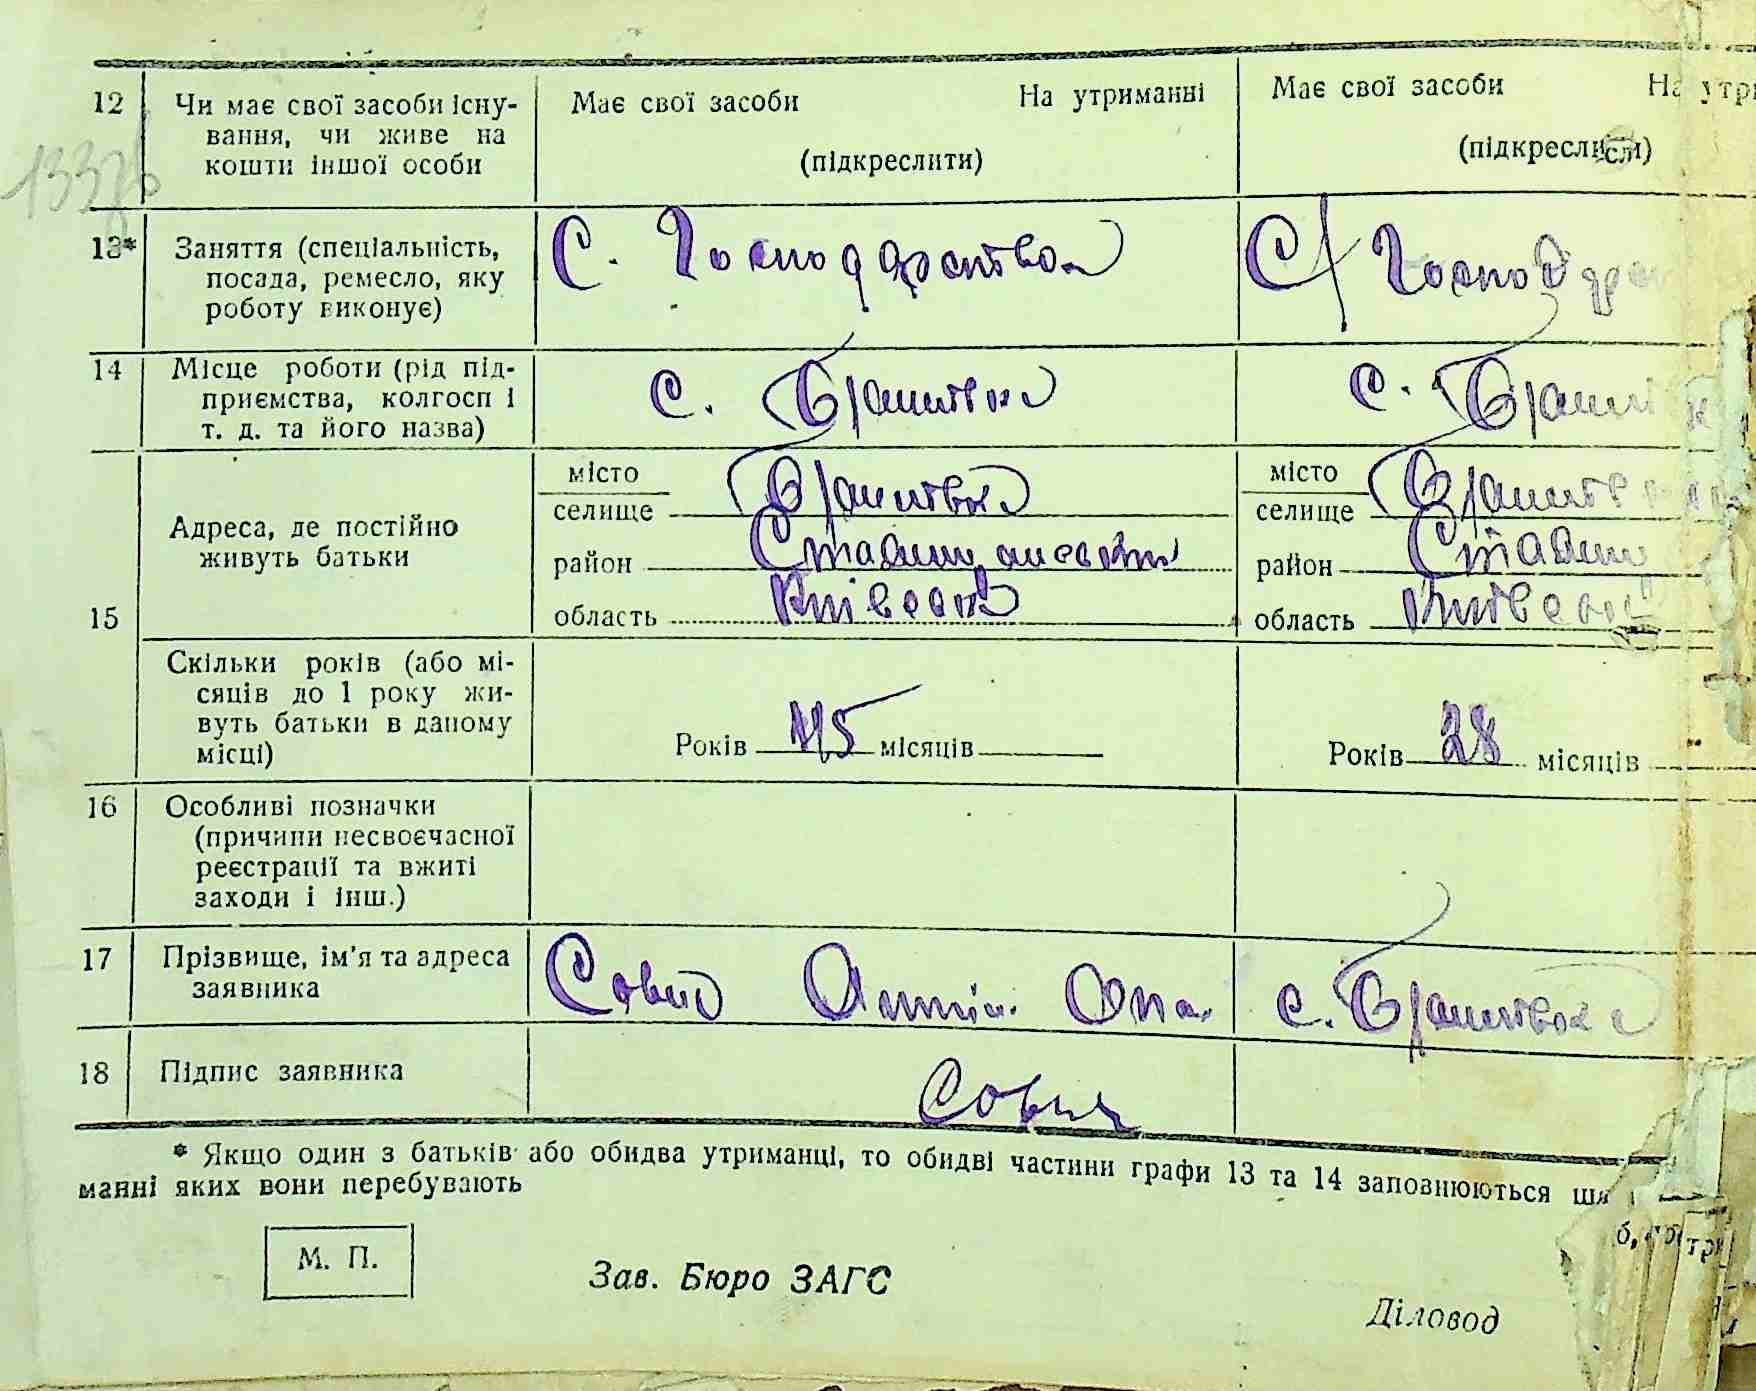 12 Чи має свої засоби існу- Має свої засоби На утриманні Має свої засоби На утри
вання, чи живе на
кошти іншої особи (підкреслити) (підкреслити)
13* Заняття (спеціальність, С. Господарство С/Господар
посада, ремесло, яку
роботу виконує)
14 Місце роботи (рід під-
приємства, колгосп і с. с.
т. д. та його назва)
15 Адреса, де постійно
живуть батьки
місто місто
селище селище
район район
область Київськ область Київськ
Скільки років (або мі-
сяців до 1 року жи-
вуть батьки в даному Років 45 місяців Років 28 місяців
місці)
16 Особливі позначки
(причини несвоєчасної
реєстрації та вжиті
заходи і інш.)
17 Прізвище, ім'я та адреса
заявника с.
18 Підпис заявника
* Якщо один з батьків або обидва утриманці, то обидві частини графи 13 та 14 заповнюються
манні яких вони перебувають
М. П.
Зав. Бюро ЗАГС
Діловод